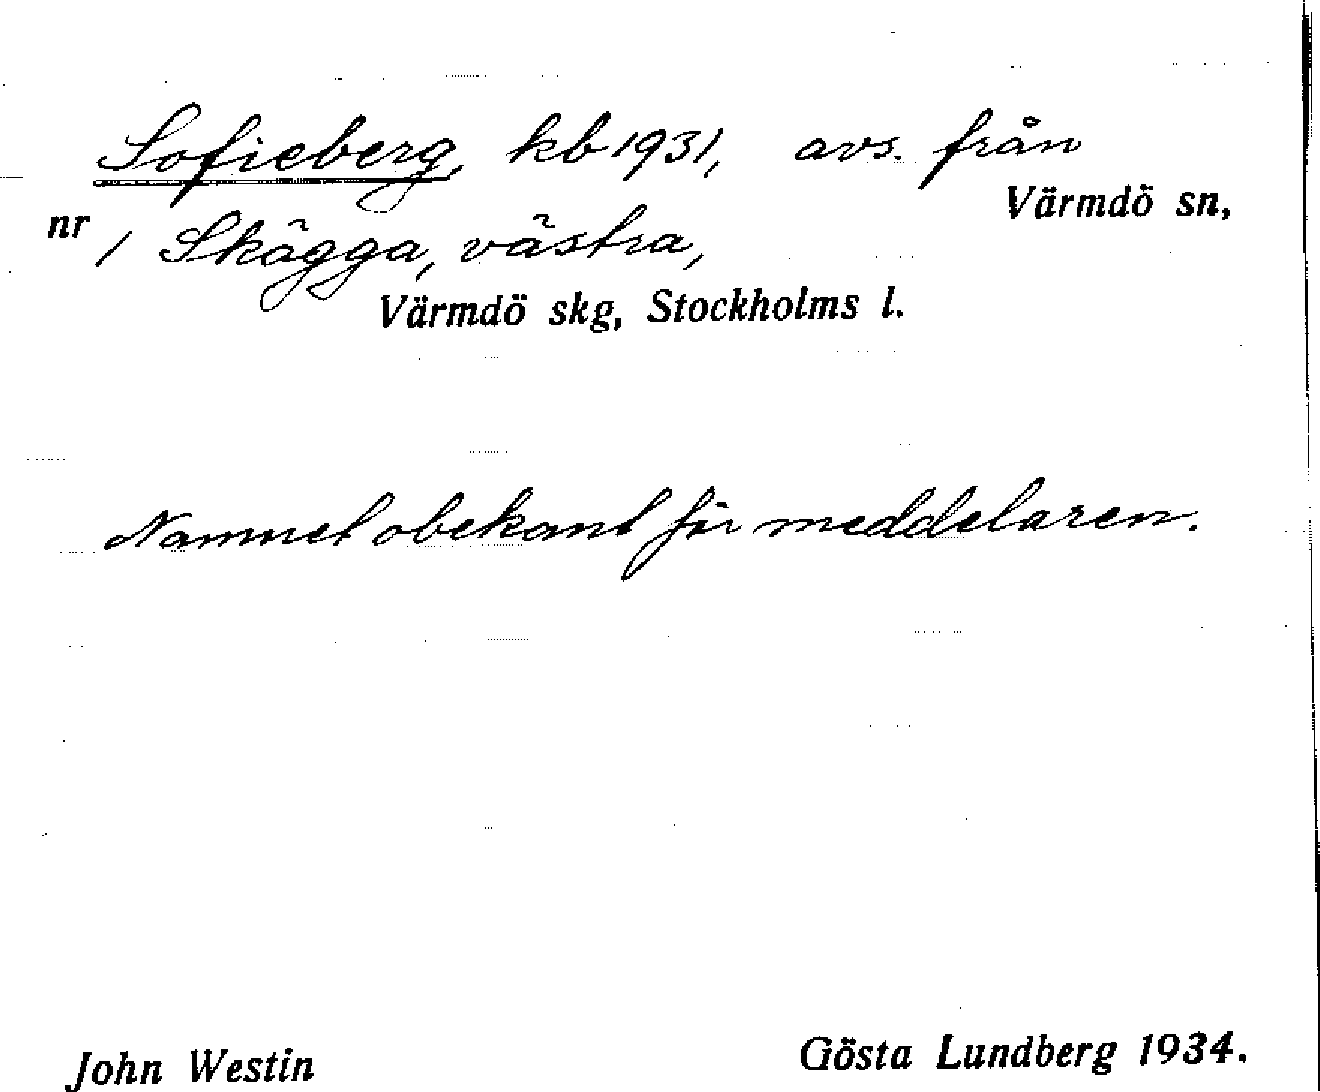 Sofieberg, kb 1931, avs. från
Värmdö sn,
nr 1 Skägga, västra,
Värmdö skg, Stockholms l.
Namnet obekant för meddelaren.
John Westin
Gösta Lundberg 1934.